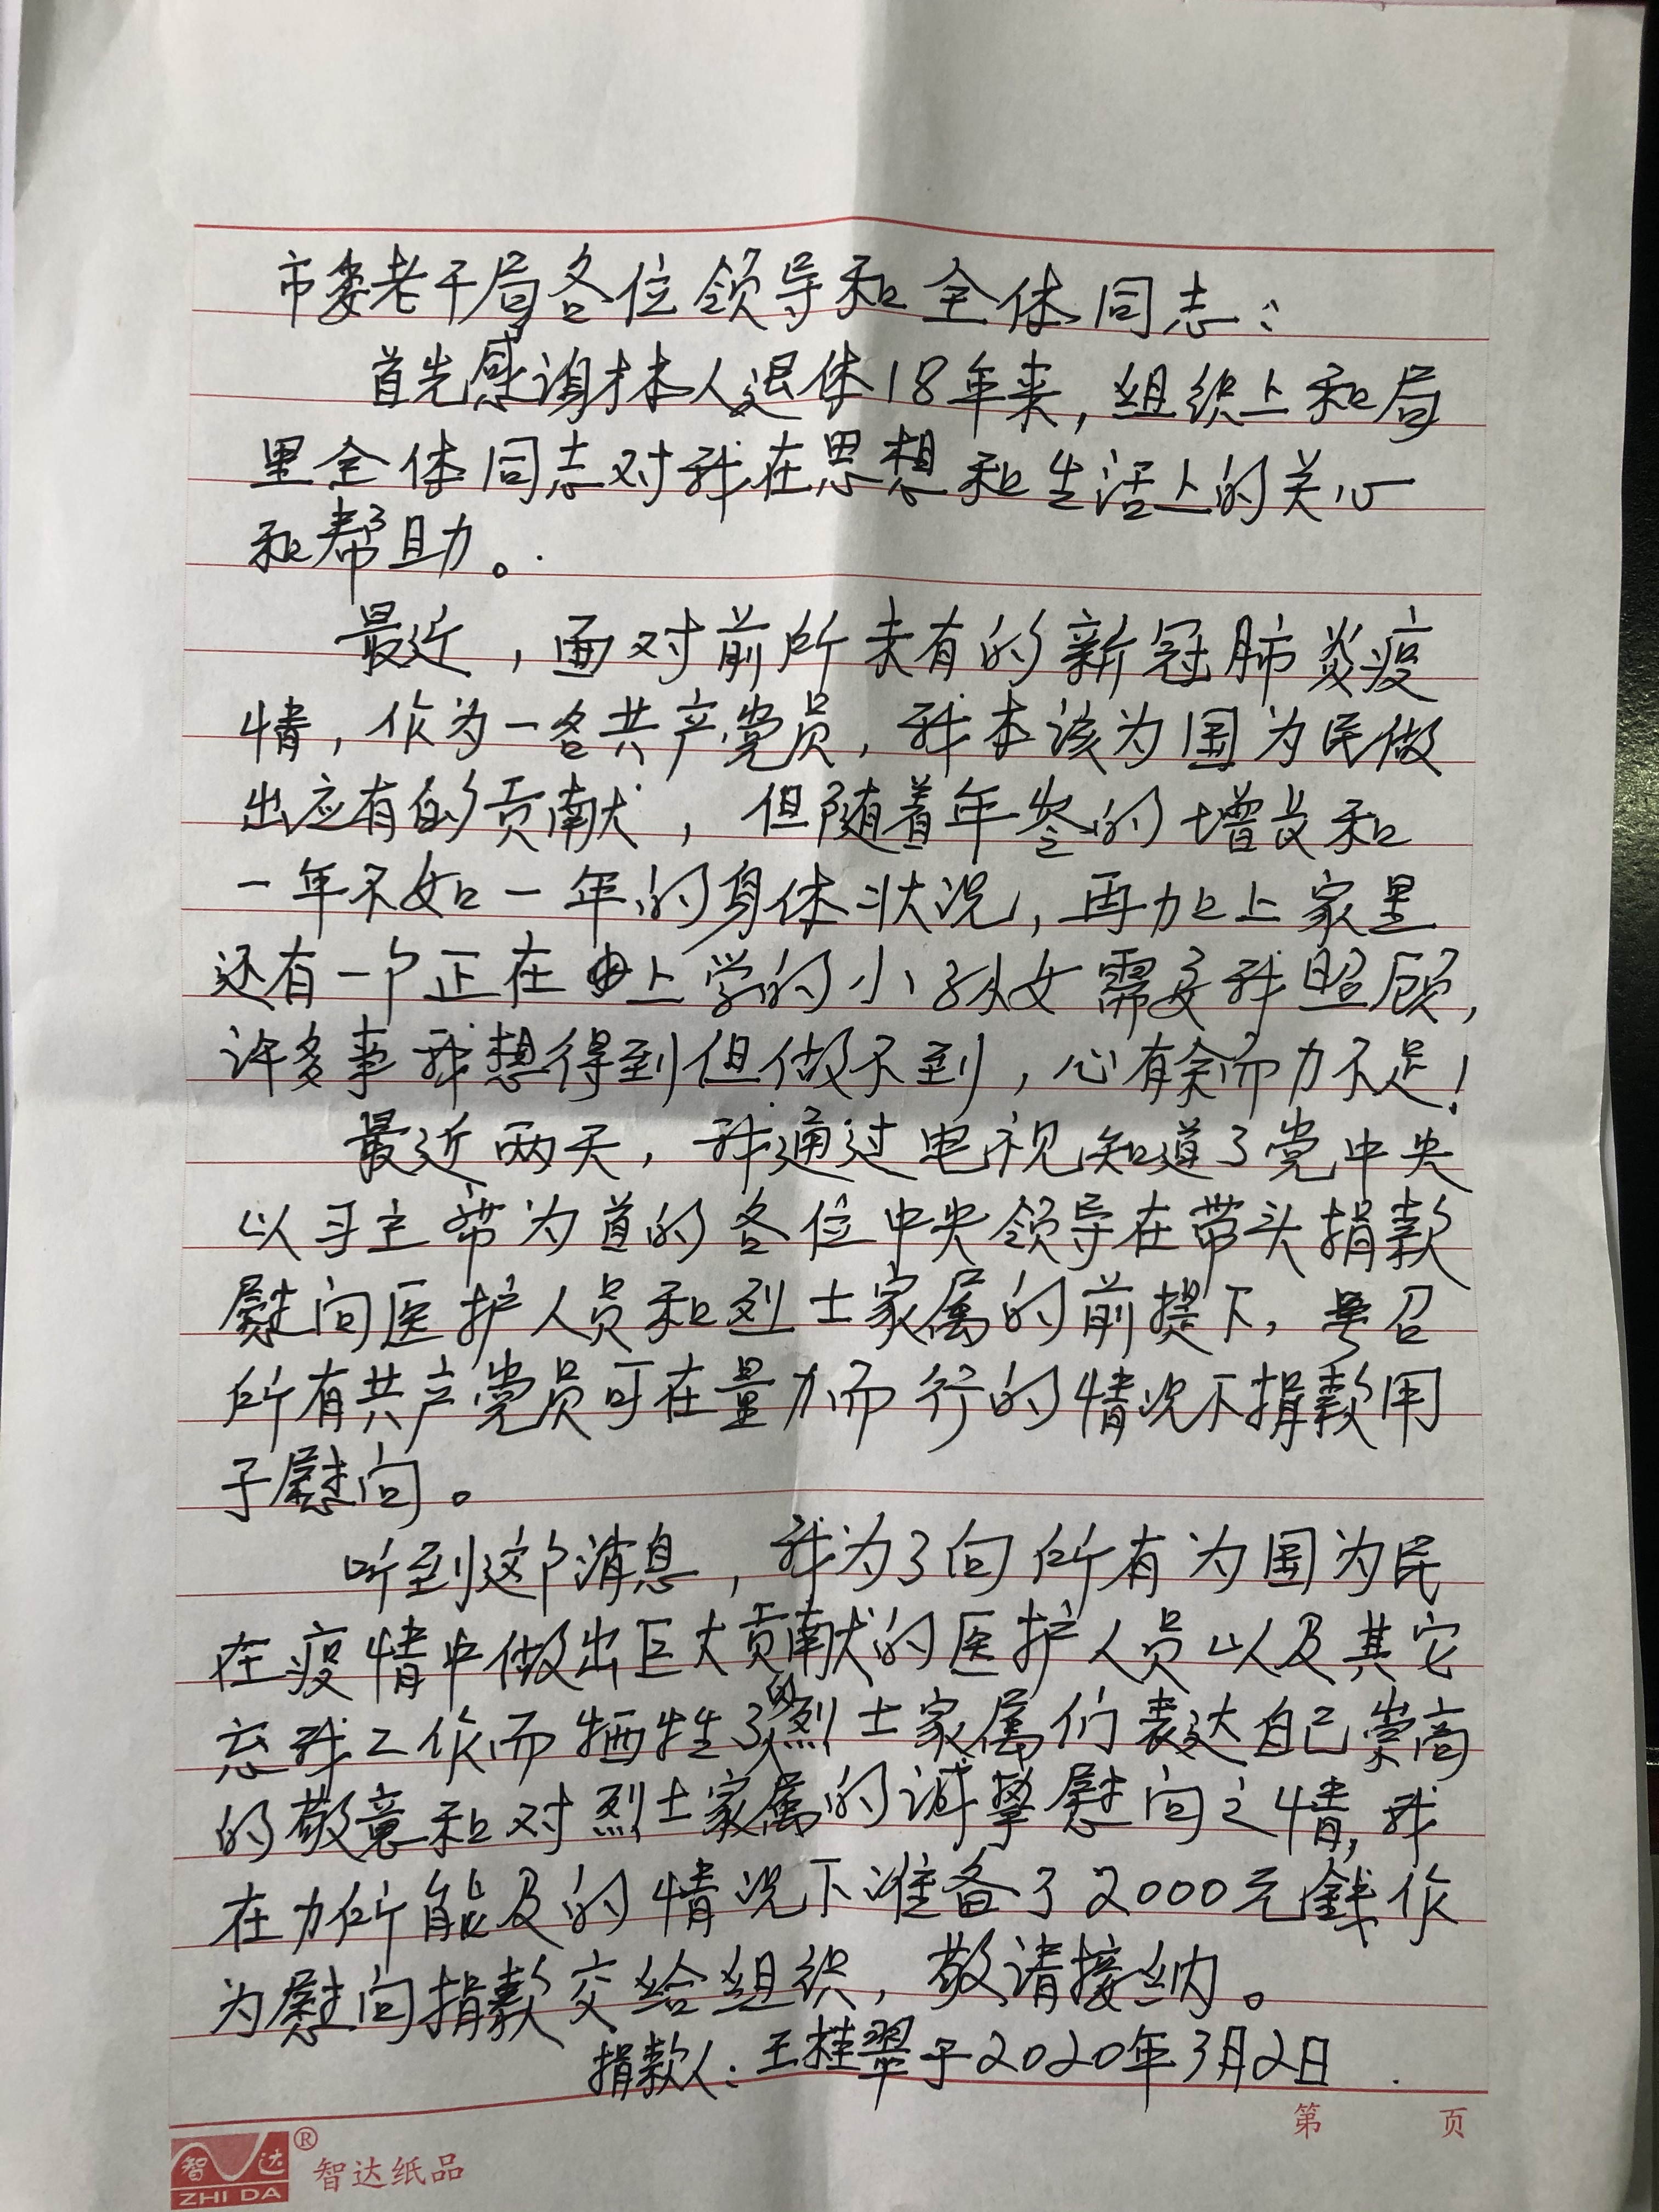 市委老干局各位领导和全体同志：
首先感谢本人退休18年来，组织上和局
里全体同志对我在思想和生活上的关心
和帮助。
最近，面对前所未有的新冠肺炎疫
情，作为一名共产党员，我本该为国为民做
出应有的贡献，但随着年岁的增长和
一年不如一年的身体状况，再加上家里
还有一个正在上学的小孙女需要我照顾，
许多事我想得到但做不到，心有余而力不足！
最近两天，我通过电视知道了党中央
以习主席为首的各位中央领导在带头捐款
慰问医护人员和烈士家属的前提下，号召
所有共产党员可在量力而行的情况下捐款用
于慰问。
听到这个消息，我为了向所有为国为民
在疫情中做出巨大贡献的医护人员以及其它
忘我工作而牺牲了的烈士家属们表达自己崇高
的敬意和对烈士家属的诚挚慰问之情，我
在力所能及的情况下准备了2000元錢作
为慰问捐款交给组织，敬请接纳。
捐款人：王桂翠于2020年3月2日
第 页
智达 ® 智达纸品
ZHI DA